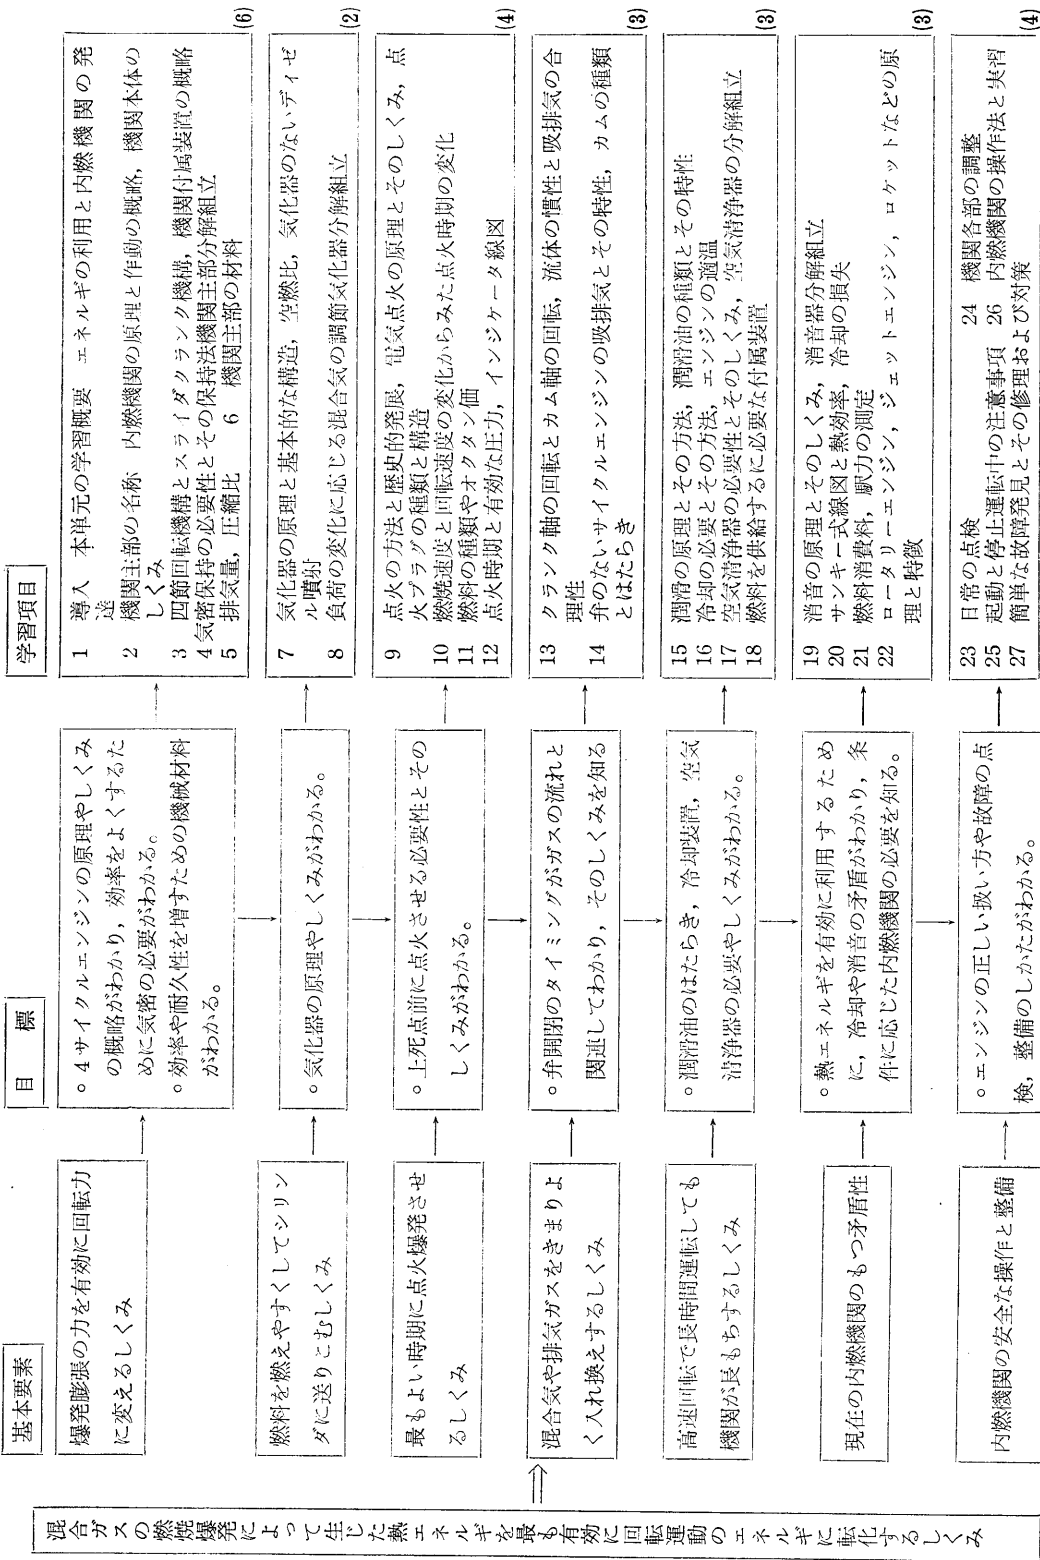 混合ガスの燃焼爆発によって生じた熱エネルギを最も有効に回転運動のエネルギに転化するしくみ
基本要素
爆発膨張の力を有効に回転力
に変えるしくみ
燃料を燃えやすくしてシリン
ダに送りこむしくみ
最もよい時期に点火爆発させ
るしくみ
混合気や排気ガスをきまりよ
く入れ換えするしくみ
高速回転で長時間運転しても
機関が長もちするしくみ
現在の内燃機関のもつ矛盾性
内燃機関の安全な操作と整備
目 標
○4サイクルエンジンの原理やしくみ
の概略がわかり,効率をよくするた
めに気密の必要がわかる。
○効率や耐久性を増すための機械材料
がわかる。
○気化器の原理やしくみがわかる。
○上死点前に点火させる必要性とその
しくみがわかる。
○弁開閉のタイミングがガスの流れと
関連してわかり,そのしくみを知る
○潤滑油のはたらき,冷却装置,空気
清浄器の必要やしくみがわかる。
○熱エネルギを有効に利用するため
に,冷却や消音の矛盾がわかり,条
件に応じた内燃機関の必要を知る。
○エンジンの正しい扱い方や故障の点
検,整備のしかたがわかる。
学習項目
1 導入 本単元の学習概要 エネルギの利用と内燃機関の発
達
2 機関主部の名称 内燃機関の原理と作動の概略,機関本体の
しくみ
3 四節回転機構とスライダクランク機構,機関付属装置の概略
4 気密保持の必要性とその保持法機関主部分解組立
5 排気量,圧縮比 6 機関主部の材料
(6)
7 気化器の原理と基本的な構造,空燃比,気化器のないディゼ
ル噴射
8 負荷の変化に応じる混合気の調節気化器分解組立
(2)
9 点火の方法と歴史的発展,電気点火の原理とそのしくみ,点
火プラグの種類と構造
10 燃焼速度と回転速度の変化からみた点火時期の変化
11 燃料の種類やオクタン価
12 点火時期と有効な圧力,インジケータ線図
(4)
13 クランク軸の回転とカム軸の回転,流体の慣性と吸排気の合
理性
14 弁のないサイクルエンジンの吸排気とその特性,カムの種類
とはたらき
(3)
15 潤滑の原理とその方法,潤滑油の種類とその特性
16 冷却の必要とその方法,エンジンの適温
17 空気清浄器の必要性とそのしくみ,空気清浄器の分解組立
18 燃料を供給するに必要な付属装置
(3)
19 消音の原理とそのしくみ,消音器分解組立
20 サンキー式線図と熱効率,冷却の損失
21 燃料消費料,馭力の測定
22 ロータリーエンジン,ジェットエンジン,ロケットなどの原
理と特徴
(3)
23 日常の点検 24 機関各部の調整
25 起動と停止運転中の注意事項 26 内燃機関の操作法と実習
27 簡単な故障発見とその修理および対策
(4)